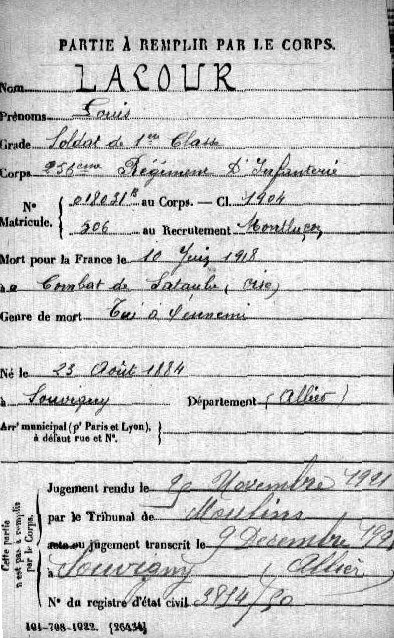 PARTIE À REMPLIR PAR LE CORPS.
Nom LACOUR
Prénoms Louis
Grade Soldat de 1ere Classe
Corps Régiment D'Infanterie
N° Matricule. { 018031 au Corps. — Cl. 1904
506 au Recrutement Montluçon
Mort pour la France le 10 Juin 1918
à Combat de (Oise)
Genre de mort Tué à l'ennemi
Né le 23 Août 1884
à Souvigny Département (Allier)
Arr' municipal (p' Paris et Lyon),
à défaut rue et N°.
Cette partie n'est pas à remplir par le Corps.
Jugement rendu le Novembre 1921
par le Tribunal de Moulins
acte ou jugement transcrit le 9 Décembre 192
à Souvigny (Allier)
N° du registre d'état civil
101-708-1922. [26434]